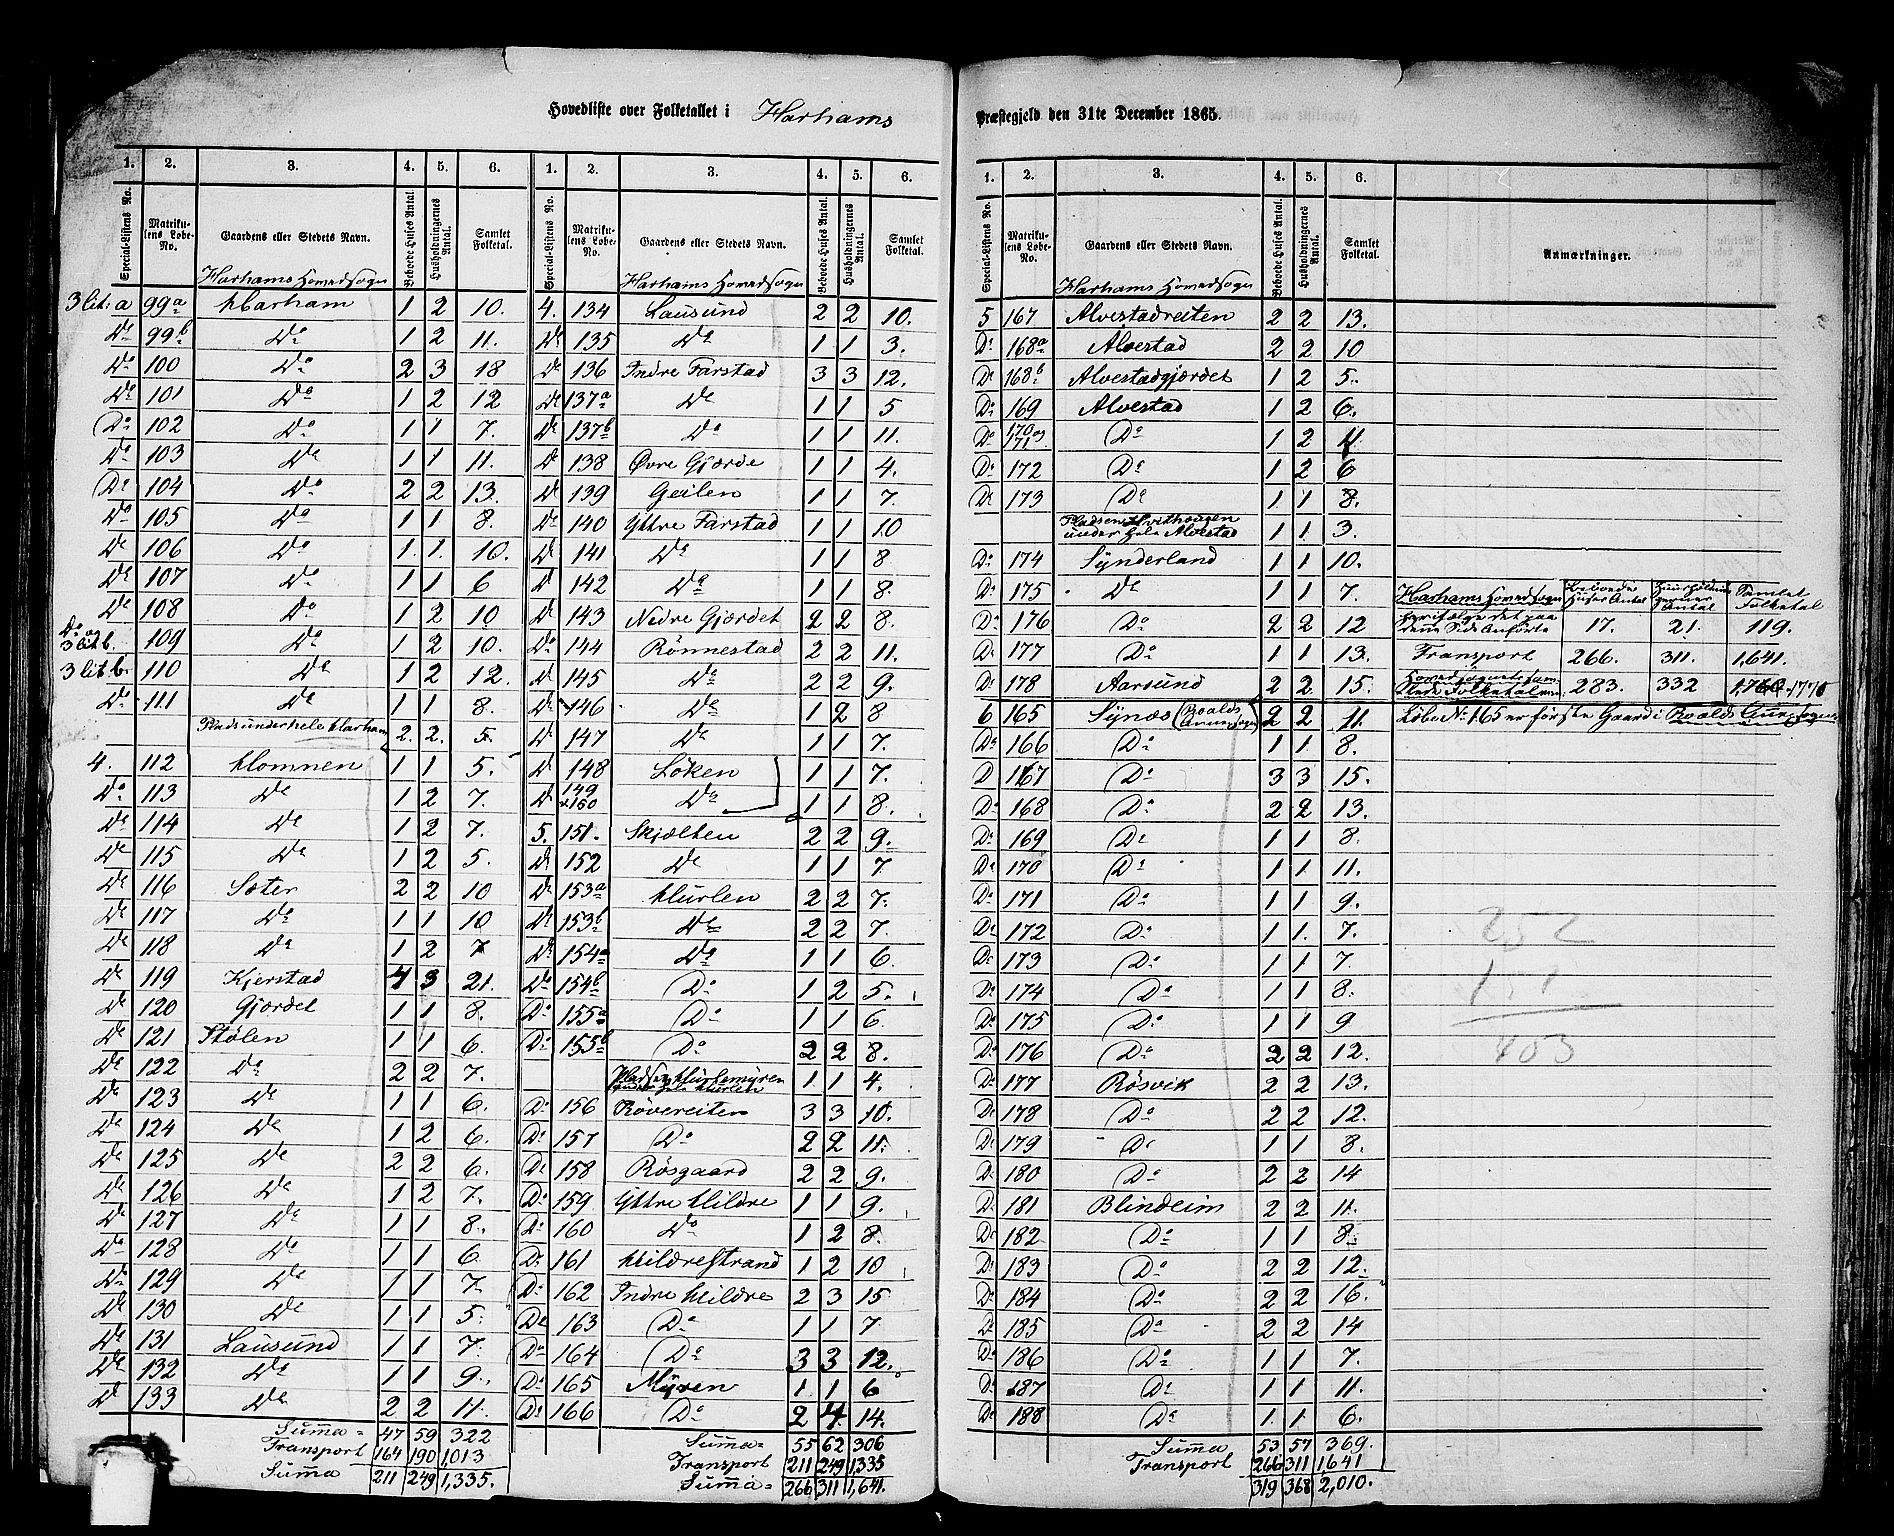 Hovedliste over Folketallet i Harhams Præstegjeld den 31te December 1865.
1. 2. 3. 4. 5. 6.
Special-Listens No. Matrikulens Løbe-No. Gaardens eller Stedets Navn. Beboede Huses Antal. Husholdningernes Antal. Samlet Folketal.
Harhams Hovedsogn
3 lit. a 99a Harham 1 2 10.
Do 99b Do 1 2 11.
Do 100 Do 2 3 18
Do 101 Do 1 2 12
Do 102 Do 1 1 7.
Do 103 Do 1 1 11.
Do 104 Do 2 2 13.
Do 105 Do 1 1 8.
Do 106 Do 1. 1. 10.
Do 107 Do 1 1 6
Do 108 Do 1 2 10
Do og 3 lit b. 109 Do 1 2 10.
3 lit. b. 110 Do 1 2 12.
Do 111 Do 1 1 8.
Plads under hele Harham 2. 2. 5.
4. 112 Homnen 1 1 5.
Do 113 Do 1 2 7.
Do 114 Do 1 2 7.
Do 115 Do 1 2 5.
Do 116 Sæter 2 2 10
Do 117 Do 1 1 10
Do 118 Do 1 2 7
Do 119 Kjerstad 4 3 21.
Do 120 Gjærdet 1 1 8.
Do 121 Stølen 1 1 6.
Do 122 Do 2 2 7.
Do 123 Do 1 1 6.
Do 124 Do 1 2 6.
Do 125 Do 2 2 6.
Do 126 Do 1 2 7.
Do 127 Do 1 1 8.
Do 128 Do 1 1 6
Do 129 Do 1 1 7.
Do 130 Do 1 1 5.
Do 131 Lausund 1 1 7.
Do 132 Do 1 1 9.
Do 133 Do 2 2 11.
Summa 47 59 322
Transport 164 190 1,013
Summa 211 249 1,335.
1. 2. 3. 4. 5. 6.
Special-Listens No. Matrikulens Løbe-No. Gaardens eller Stedets Navn. Beboede Huses Antal. Husholdningernes Antal. Samlet Folketal.
Harhams Hovedsogn
4. 134 Lausund 2 2 10.
Do 135 Do 1 1 3.
Do 136 Indre Farstad 3 3 12.
Do 137a Do 1 1 5
Do 137b Do 1 1 11.
Do 138 Øvre Gjærde 1 1 4.
Do 139 Geilen 1 1 7.
Do 140 Yttre Farstad 1 1 10
Do 141 Do 1 1 8
Do 142 Do 1 1 8.
Do 143 Nedre Gjærdet 2 2 8.
Do 144 Rønnestad 2 2 11.
Do 145 Do 2 2 9.
Do 146 Do 1 2 8
Do 147 Do 1 1 7.
Do 148 Løken 1 1 7.
Do 149 & 150 Do 1 1 8.
5. 151. Skjelten 2 2 9.
Do 152 Do 1 1 7
Do 153a Hurlen 2 2 7.
Do 153b Do 2 2 7.
Do 154a Do 1 1 6.
Do 154b Do 1 2 5.
Do 155a Do 1 1 6.
Do 155b Do 2 2 8.
Pladsen Hurlemyren under hele Hurlen 1 1 4.
Do 156 Røvereiten 3 3 10.
Do 157 Do 2 2 11.
Do 158 Røsgaard 2 2 9.
Do 159 Yttre Hildre 1 1 9.
Do 160 Do 1 2 8.
Do 161 Hildrestrand 1 2 10
Do 162 Indre Hildre 2 3 15
Do 163 Do 1 1 7
Do 164 Do 3 3 12.
Do 165 Myren 1 1 6
Do 166 Do 2 4. 14.
Summa 55 62 306
Transport 211 249 1,335
Summa 266 311 1,641.
1. 2. 3. 4. 5. 6.
Special-Listens No. Matrikulens Løbe-No. Gaardens eller Stedets Navn. Beboede Huses Antal. Husholdningernes Antal. Samlet Folketal. Anmærkninger.
Harhams Hovedsogn
5 167 Alvestadreiten 2 2 13.
Do 168a Alvestad 2 2 10
Do 168b Alvestadgjærdet 1 2 5.
Do 169 Alvestad 1 2 6.
Do 170 og 171 Do 1 2 4
Do 172 Do 1 2 6
Do 173 Do 1 1 8.
Pladsen Hvithougen under hele Alvestad 1 1 3.
Do 174 Synderland 1 1 10.
Do 175 Do 1 1 7. Harhams Hovedsogn Beboede Huses Antal Huusholdningernes Antal Samlet Folketal
Do 176 Do 2 2 12 herifølge det paa denne Side Anførte 17. 21. 119.
Do 177 Do 1 1 13. Transport 266. 311. 1,641.
Do 178 Aarsund 2 2 15. Hovedsognets samlede Folketal 283. 332 1,760. 1771
6 165 Synæs (Roalds Annexsogn) 2 2 11. Løbe No 165 er første Gaard i Roalds Annexsogn
Do 166 Do 1 1 8.
D 167 Do 3 3 15.
Do 168 Do 2 2 13.
Do 169 Do 1 1 8.
Do 170 Do 1 1 11.
Do 171 Do 1 1 9.
Do 172 Do 1 1. 7.
Do 173 Do 1 1 7.
Do 174 Do 1 1 8.
Do 175 Do 1 1 9
Do 176 Do 2 2 12.
Do 177 Røsvik 2 2 13.
Do 178 Do 2 2 12.
Do 179 Do 1 1 8.
Do 180 Do 2 2 14
Do 181 Blindeim 2 2 11.
Do 182 Do 1 1 8.
Do 183 Do 2 2 12.
Do 184 Do 2 2 16.
Do 185 Do 2 2 14
Do 186 Do 1 1 7.
Do 187 Do 1 1 11.
Do 188 Do 1. 1. 6.
Summa 53 57 369.
Transport 266 311 1641
319 368 2,010.
252